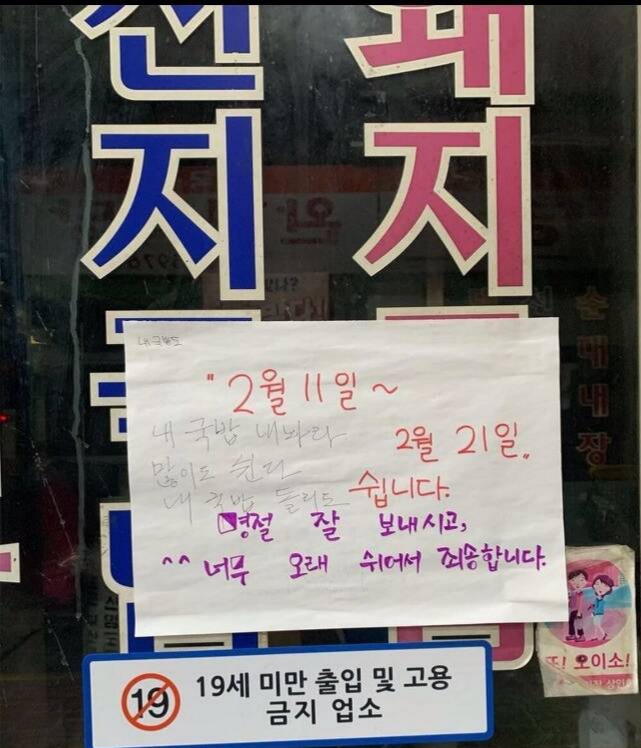 선지
돼지
내 국밥도
"2월 11일 ~
2월 21일"
쉽니다.
내 국밥 내놔라
많이도 쉰다
내 국밥 돌려도
명절 잘 보내시고,
^^ 너무 오래 쉬어서 죄송합니다.
순대내장
또! 오이소!
19
19세 미만 출입 및 고용
금지 업소